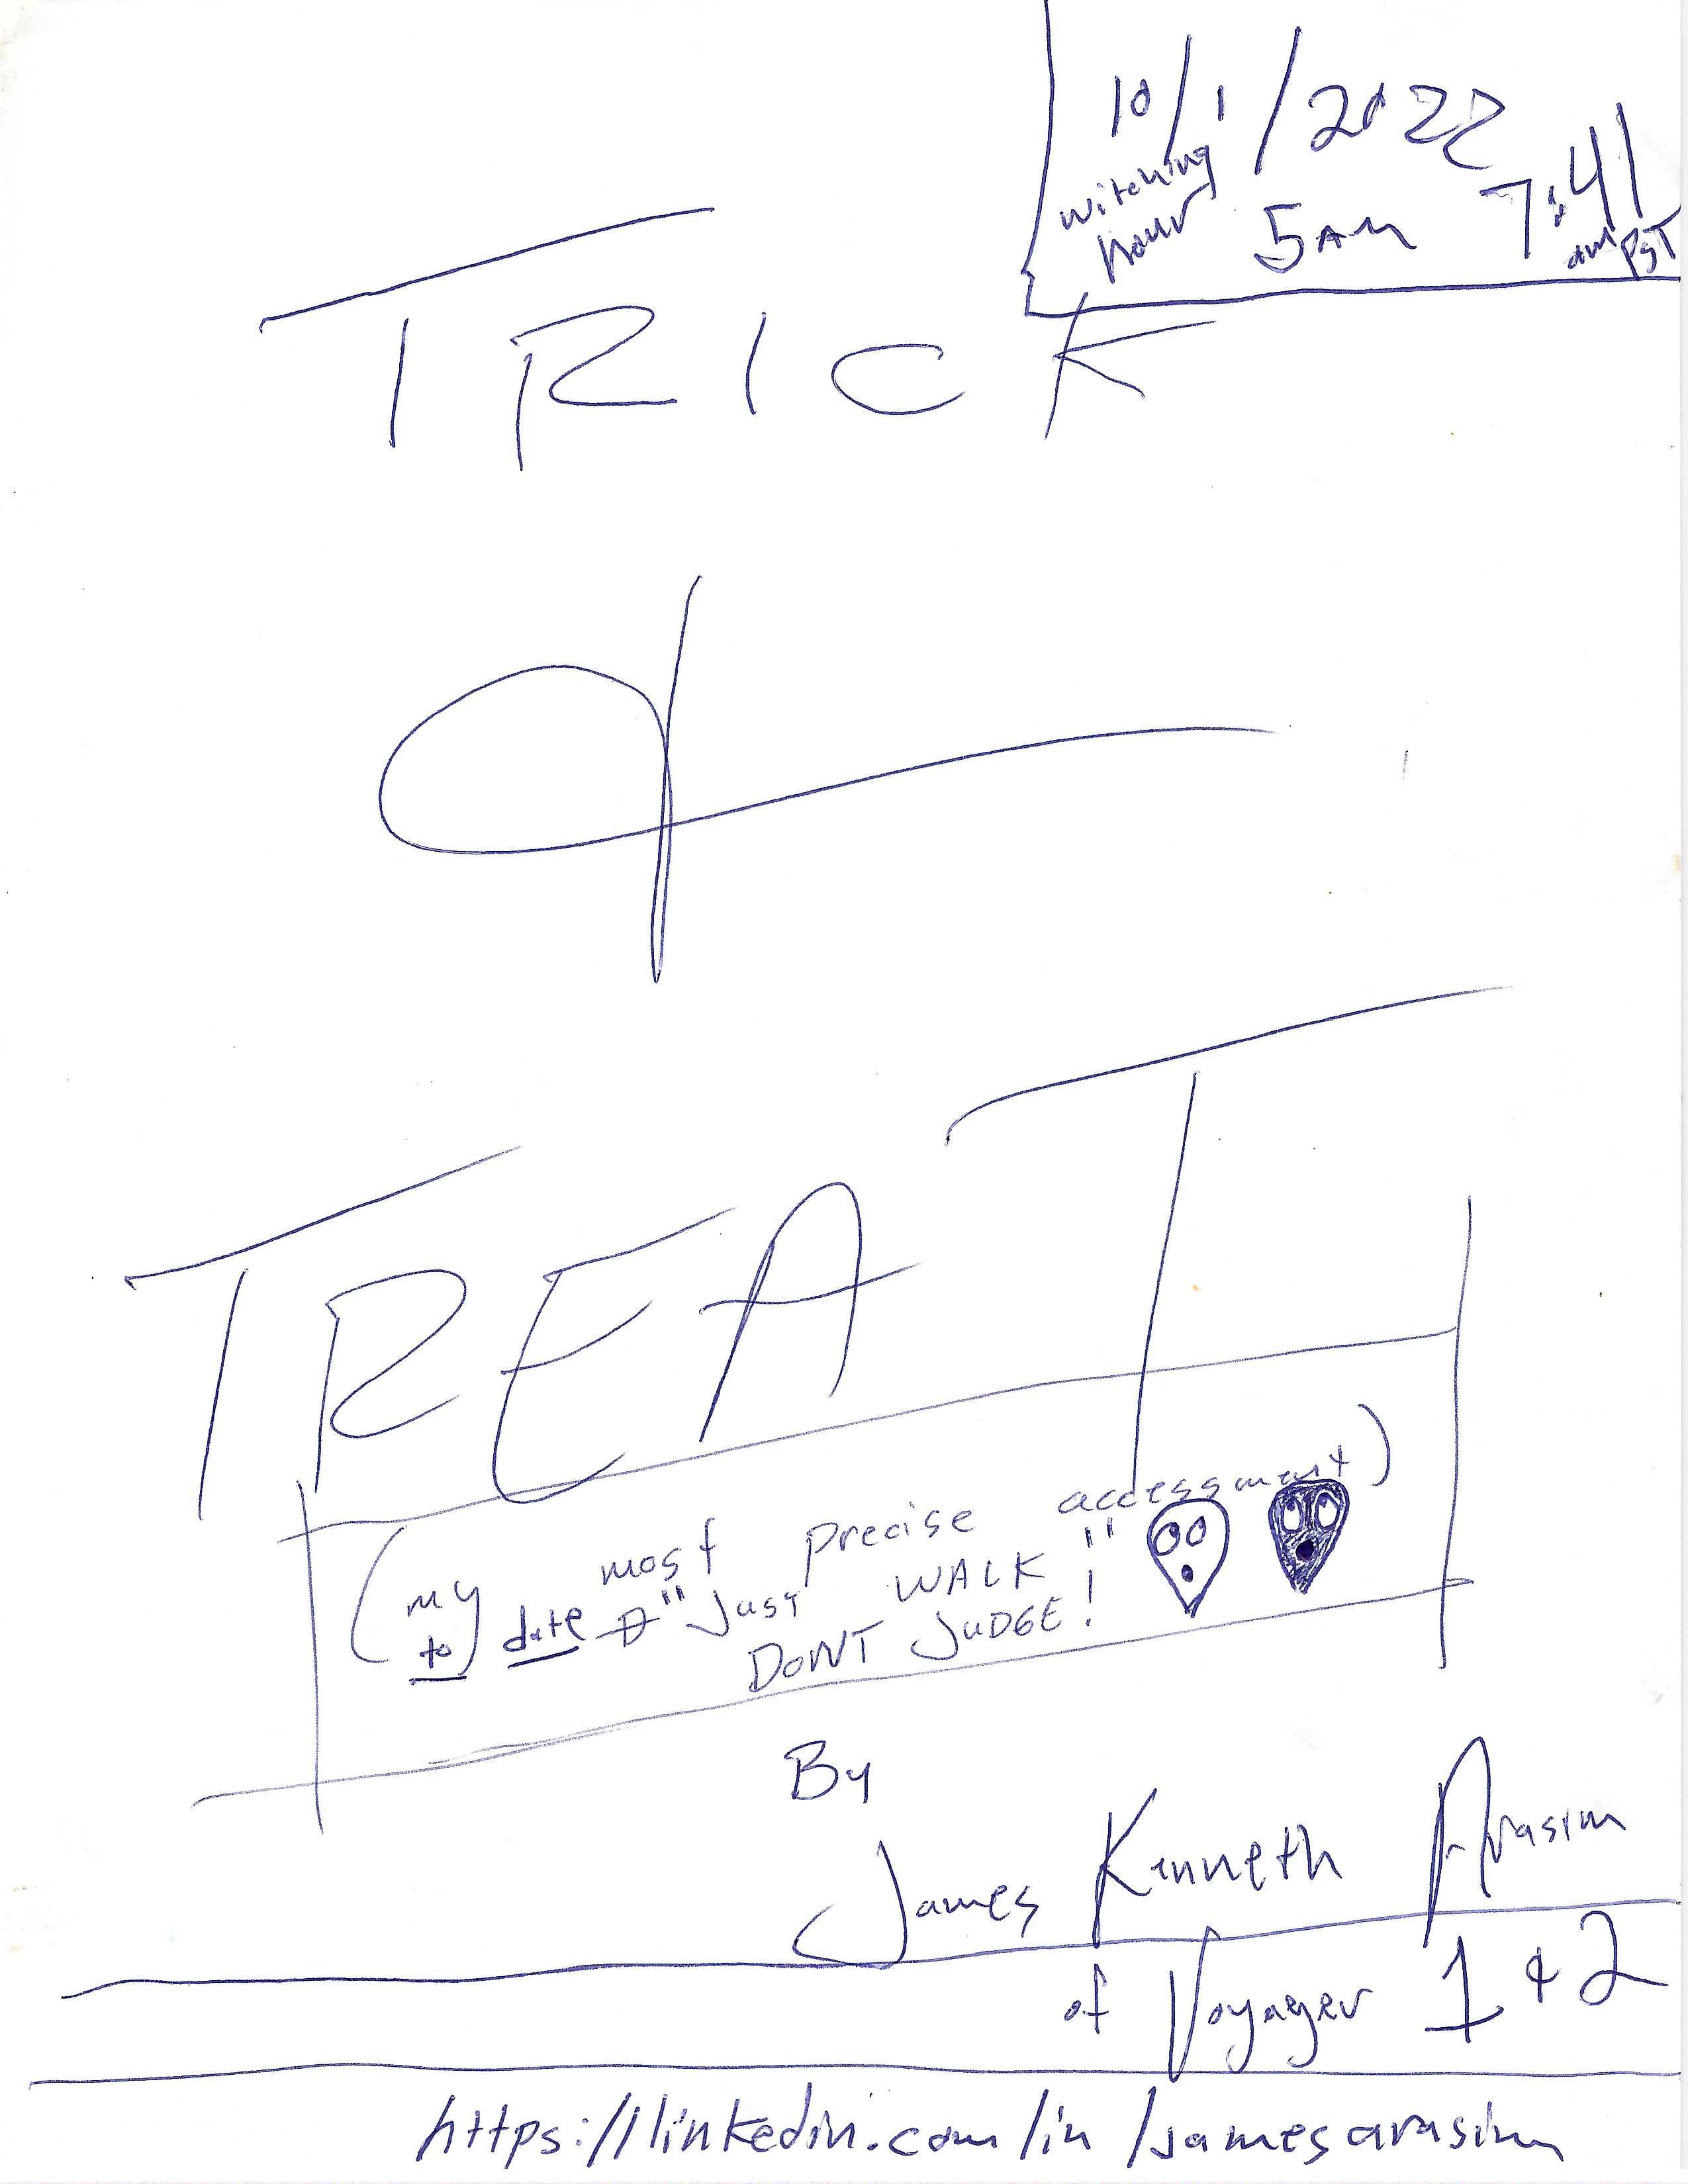 10/1/2022
witching
hour
5AM
7:41
am PST
TRICK
&
TREAT
(my most precise accessment)
to date "JUST WALK"
DONT JUDGE!
By
James Kenneth Arasim
of Voyager 1 & 2
https://linkedin.com/in/jamesarasim